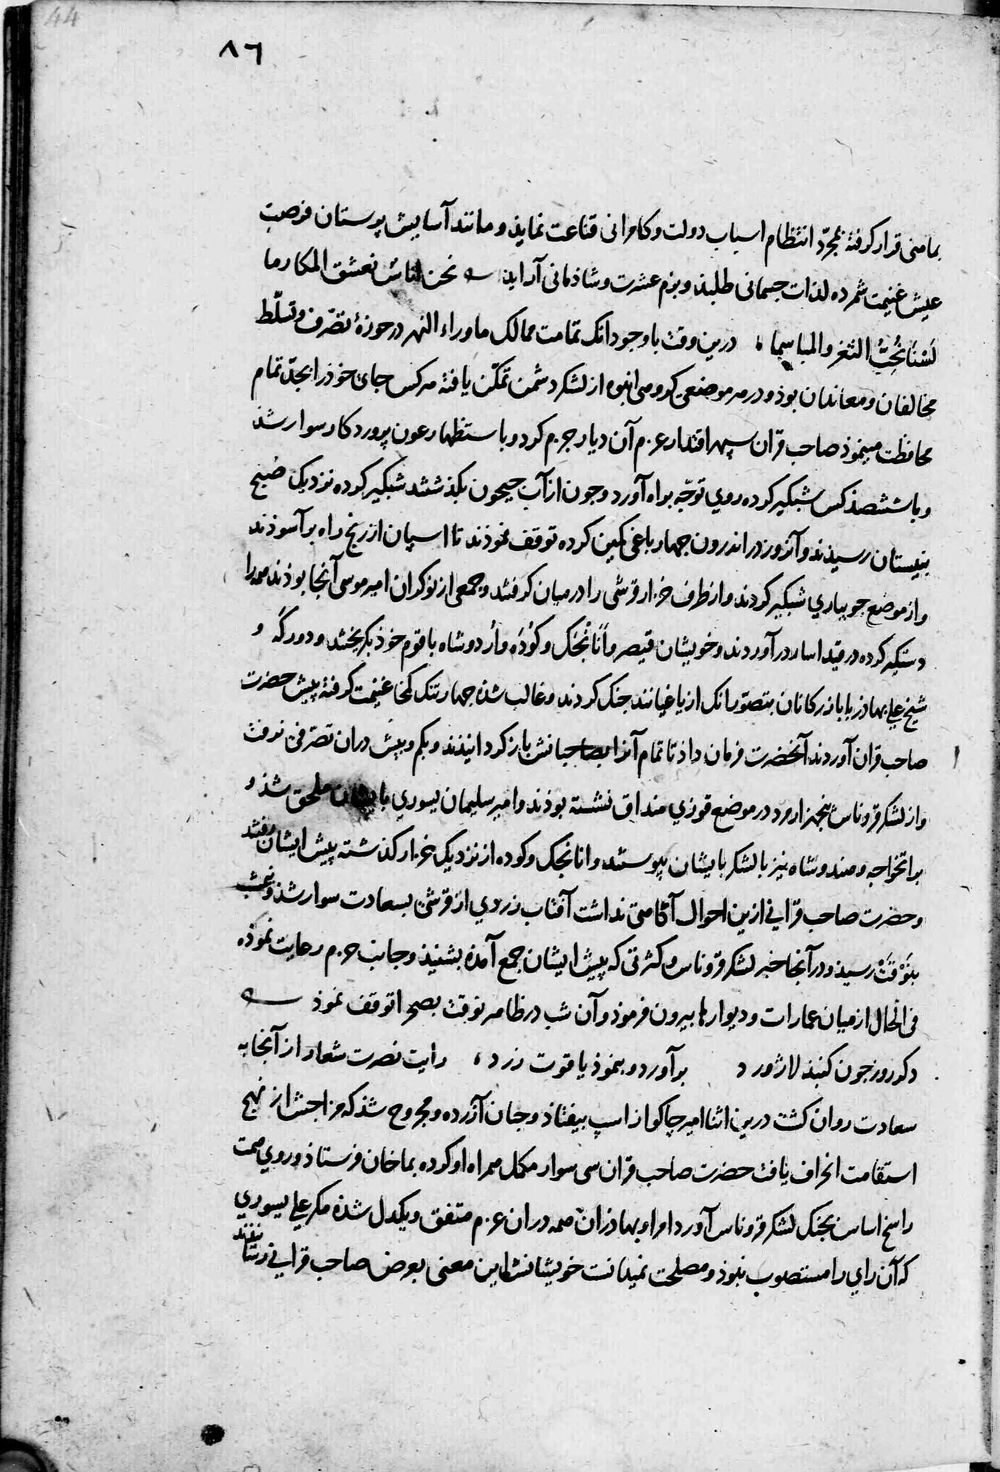 44
٨٦
بمامنی قرار کرفته بمجرّد انتظام اسباب دولت و کامرانی قناعت نمایذ و مانند آسایش پرستان فرصت
عیش غنیمت شمرده لذات جسمانی طلبذ و بزم عشرت و شاذمانی آراید نحن اناس نعشق المکارما
لسنا نحبّ الثغر والمباسما درین وقت باوجود انک تمامت ممالک ماوراء النهر در حوزهٔ تصرّف و تسلّط
مخالفان و معاندان بوذ و در هر موضعی کروهی انبوه از لشکر دشمن تمکّن یافته هر کس جای خوذ را بجدّ تمام
محافظت مینموذ صاحب قران سپهر اقتدار عزم آن دیار جزم کرد و باستظهار عون پروردکار سوار شذ
و با ششصذ کس شبکیر کرده روی توجّه براه آورد و جون از آب جیحون بکذشتند شبکیر کرده نزدیک صبح
بنیستان رسیذند و آنروز در اندرون جهارباغی کمین کرده توقف نموذند تا اسپان از رنج راه برآسوذند
و از موضع جوبیاری شبکیر کردند و از طرف خزار قرشی را در میان کرفتند و جمعی از نوکران امیر موسی آنجا بوذند همه را
دستکیر کرده در قید اسار درآوردند و خویشان قیصر و انانجک و کوذه و اردوشاه با قوم خوذ بکریختند و دورکه و
شیخ علی بهاذر با بازرکانان بتصوّر انک از یاغیانند جنک کردند و غالب شذه جهار تنک کمخا غنیمت کرفته پیش حضرت
صاحب قران آوردند آنحضرت فرمان داذ تا تمام آنرا بصاحبانش باز کردانیذند و بکم و بیش دران تصرّفی نرفت
و از لشکر قروناس پنجهزار مرد در موضع قوزی منداق نشسته بوذند و امیر سلیمان یسوری بایشان ملحق شذ و
براتخواجه و هندوشاه نیز با لشکر بایشان پیوستند و انانجک و کوده از نزدیک خزار کذشته پیش ایشان رفتند
و حضرت صاحب قرانی ازین احوال آکاهی نداشت آفتاب زردی از قرشی بسعادت سوار شذ و نیم شب
بنوقت رسیذ و در آنجا خبر لشکر قروناس و کثرتی که پیش ایشان جمع آمده بشنیذ و جانب حزم رعایت نموذه
فی الحال از میان عمارات و دیوارها بیرون فرموذ و آن شب در ظاهر نوقت بصحرا توقف نموذ
دکر روز جون کنبذ لاژورد برآورد و بنموذ یاقوت زرد رایت نصرت شعار از آنجا به
سعادت روان کشت درین اثنا امیر جاکو از اسپ بیفتاذ و جنان آزرده و مجروح شذ که مزاجش از نهج
استقامت انحراف یافت حضرت صاحب قران سی سوار مکمل همراه او کرده بماخان فرستاذ و روی همت
راسخ اساس بجنک لشکر قروناس آورد امرا و بهاذران همه دران عزم متفق و یکدل شذه مکر علی یسوری
که آن رای را مستصوب نبوذ و مصلحت نمیدانست خویشانش این معنی بعرض صاحب قرانی رسانیذند